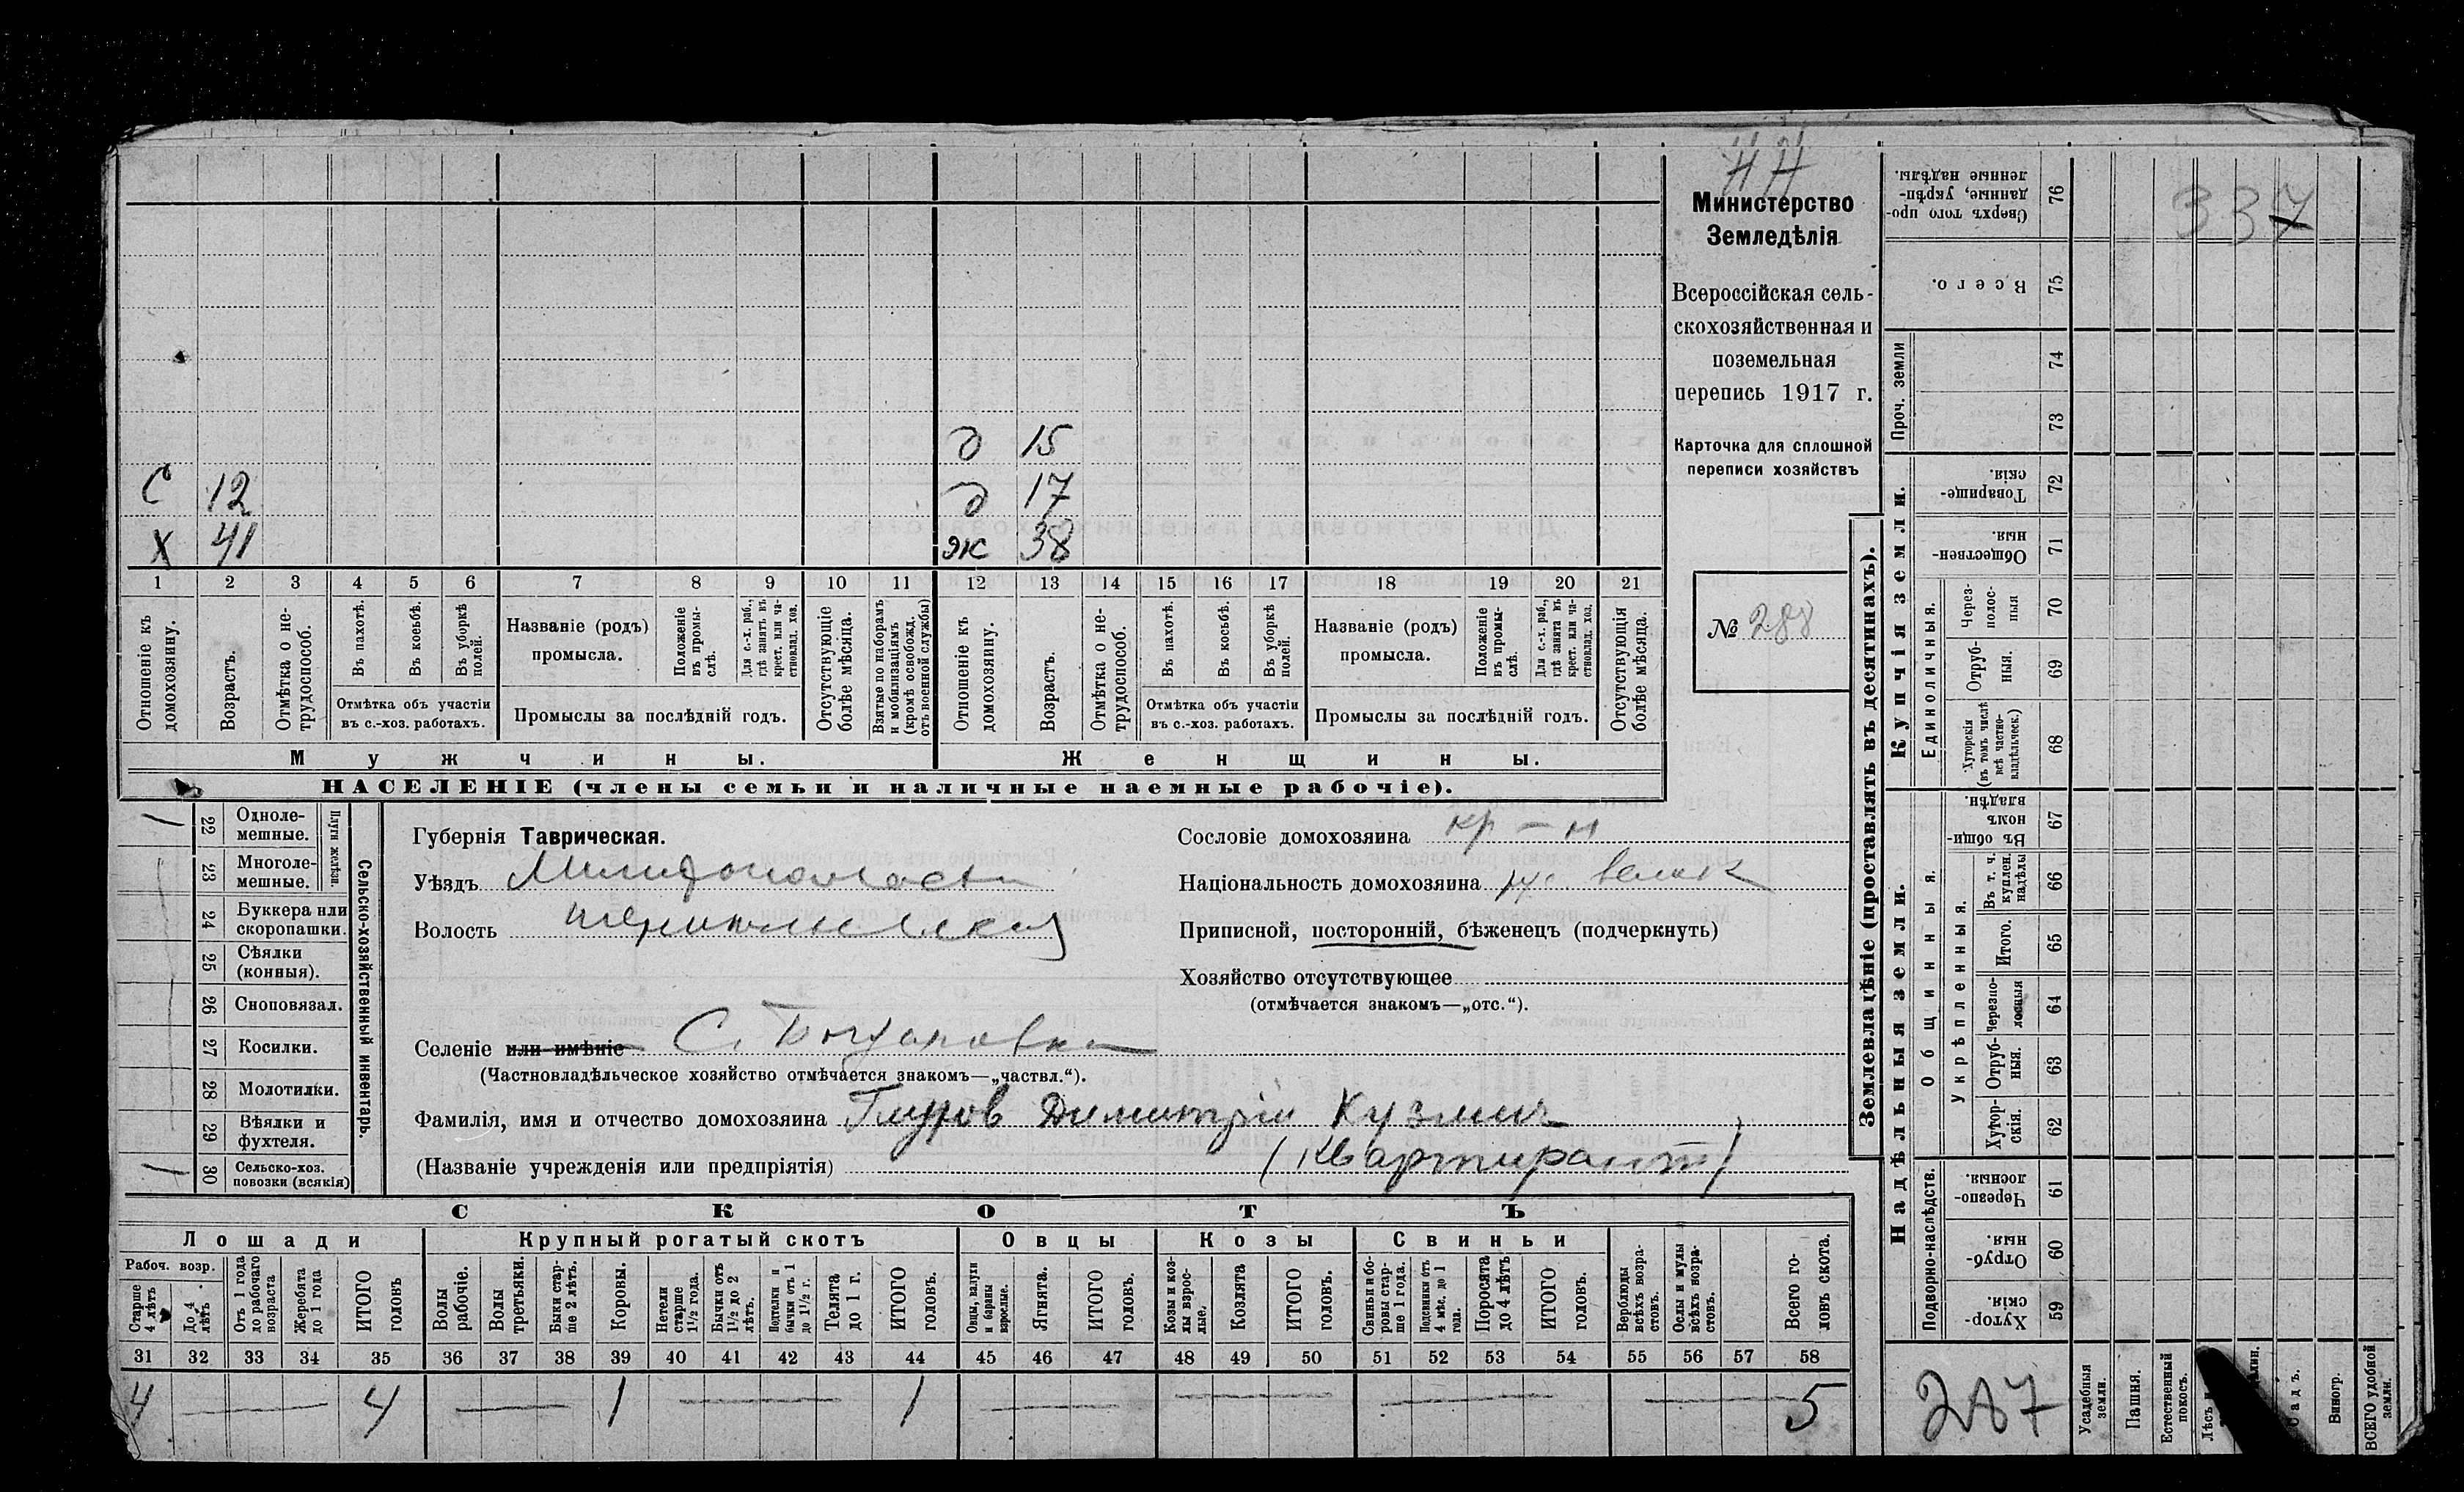 НН
Министерство
Земледѣлія
Всероссійская сель-
скохозяйственная и
поземельная
перепись 1917 г.
Карточка для сплошной
переписи хозяйствъ
№ 288
337
д 15
С 12 д 17
Х 41 ж 38
1 2 3 4 5 6 7 8 9 10 11 12 13 14 15 16 17 18 19 20 21
Отношеніе къ домохозяину.
Возрастъ.
Отмѣтка о не-трудоспособ.
Въ пахотѣ.
Въ косьбѣ.
Въ уборкѣ полей.
Отмѣтка объ участіи
въ с.-хоз. работахъ.
Названіе (родъ)
промысла.
Положеніе въ промы-слѣ.
Для с.-х. раб., гдѣ занятъ въ крест. или ча-стновлад. хоз.
Промыслы за послѣдній годъ.
Отсутствующіе болѣе мѣсяца.
Взятые по наборамъ и мобилизаціямъ (кромѣ освобожд. отъ военной службы)
Отношеніе къ домохозяину.
Возрастъ.
Отмѣтка о не-трудоспособ.
Въ пахотѣ.
Въ косьбѣ.
Въ уборкѣ полей.
Отмѣтка объ участіи
въ с.-хоз. работахъ.
Названіе (родъ)
промысла.
Положеніе въ промы-слѣ.
Для с.-х. раб., гдѣ занята въ крест. или ча-стновлад. хоз.
Промыслы за послѣдній годъ.
Отсутствующія болѣе мѣсяца.
Мужчины. Женщины.
НАСЕЛЕНІЕ (члены семьи и наличные наемные рабочіе).
22 Одноле-мешные.
23 Многоле-мешные.
Плуги желѣзн.
24 Буккера или скоропашки.
25 Сѣялки (конныя).
26 Сноповязал.
27 Косилки.
28 Молотилки.
29 Вѣялки и фухтеля.
30 Сельско-хоз. повозки (всякія)
Сельско-хозяйственный инвентарь.
Губернія Таврическая.
Уѣздъ
Волость
Селеніе или имѣніе С. Богдановка
(Частновладѣльческое хозяйство отмѣчается знакомъ—„частвл.“).
Фамилія, имя и отчество домохозяина Димитрій Кузмич
(Названіе учрежденія или предпріятія) (Квартирант)
Сословіе домохозяина кр-н
Національность домохозяина
Приписной, посторонній, бѣженецъ (подчеркнуть)
Хозяйство отсутствующее
(отмѣчается знакомъ—„отс.“).
СКОТЪ
Лошади Крупный рогатый скотъ Овцы Козы Свиньи
Рабоч. возр.
Старше 4 лѣтъ
До 4 лѣтъ
Отъ 1 года до рабочаго возраста
Жеребята до 1 года
ИТОГО головъ
Волы рабочіе.
Волы третьяки.
Быки стар-ше 2 лѣтъ.
Коровы.
Нетели старше 1½ года.
Бычки отъ 1½ до 2 лѣтъ.
Подтелки и бычки отъ 1 до 1½ г.
Телята до 1 г.
ИТОГО головъ.
Овцы, валухи и бараны взрослые.
Ягнята.
ИТОГО головъ.
Козы и коз-лы взрос-лые.
Козлята
ИТОГО головъ.
Свиньи и бо-ровы стар-ше 1 года.
Подсвинки отъ 4 мѣс. до 1 года.
Поросята до 4 лѣтъ
ИТОГО головъ.
Верблюды всѣхъ возра-стовъ.
Ослы и мулы всѣхъ возра-стовъ.
Всего го-ловъ скота.
31 32 33 34 35 36 37 38 39 40 41 42 43 44 45 46 47 48 49 50 51 52 53 54 55 56 57 58
4 4 1 1 5
Землевладѣніе (проставлять въ десятинахъ).
Купчія земли.
Надѣльныя земли.
Сверхъ того про-данные, укрѣп-ленные надѣлы. 76
Всего. 75
Проч. земли 74
73
Товарище-скія. 72
Обществен-ныя. 71
Единоличныя.
Через-полос-ныя 70
Отруб-ныя. 69
Хуторскія (въ томъ числѣ всѣ частно-владѣльческ.) 68
Общинныя.
Въ общин-номъ владѣн. 67
Укрѣпленныя.
Въ т. ч. куплен. надѣлы 66
Итого. 65
Черезпо-лосныя 64
Отруб-ныя. 63
Хутор-скія. 62
Подворно-наслѣдств.
Черезпо-лосныя. 61
Отруб-ныя. 60
Хутор-скія. 59
287
Усадебныя земли.
Пашня.
Естественный покосъ.
Садъ.
Виногр.
ВСЕГО удобной земли.